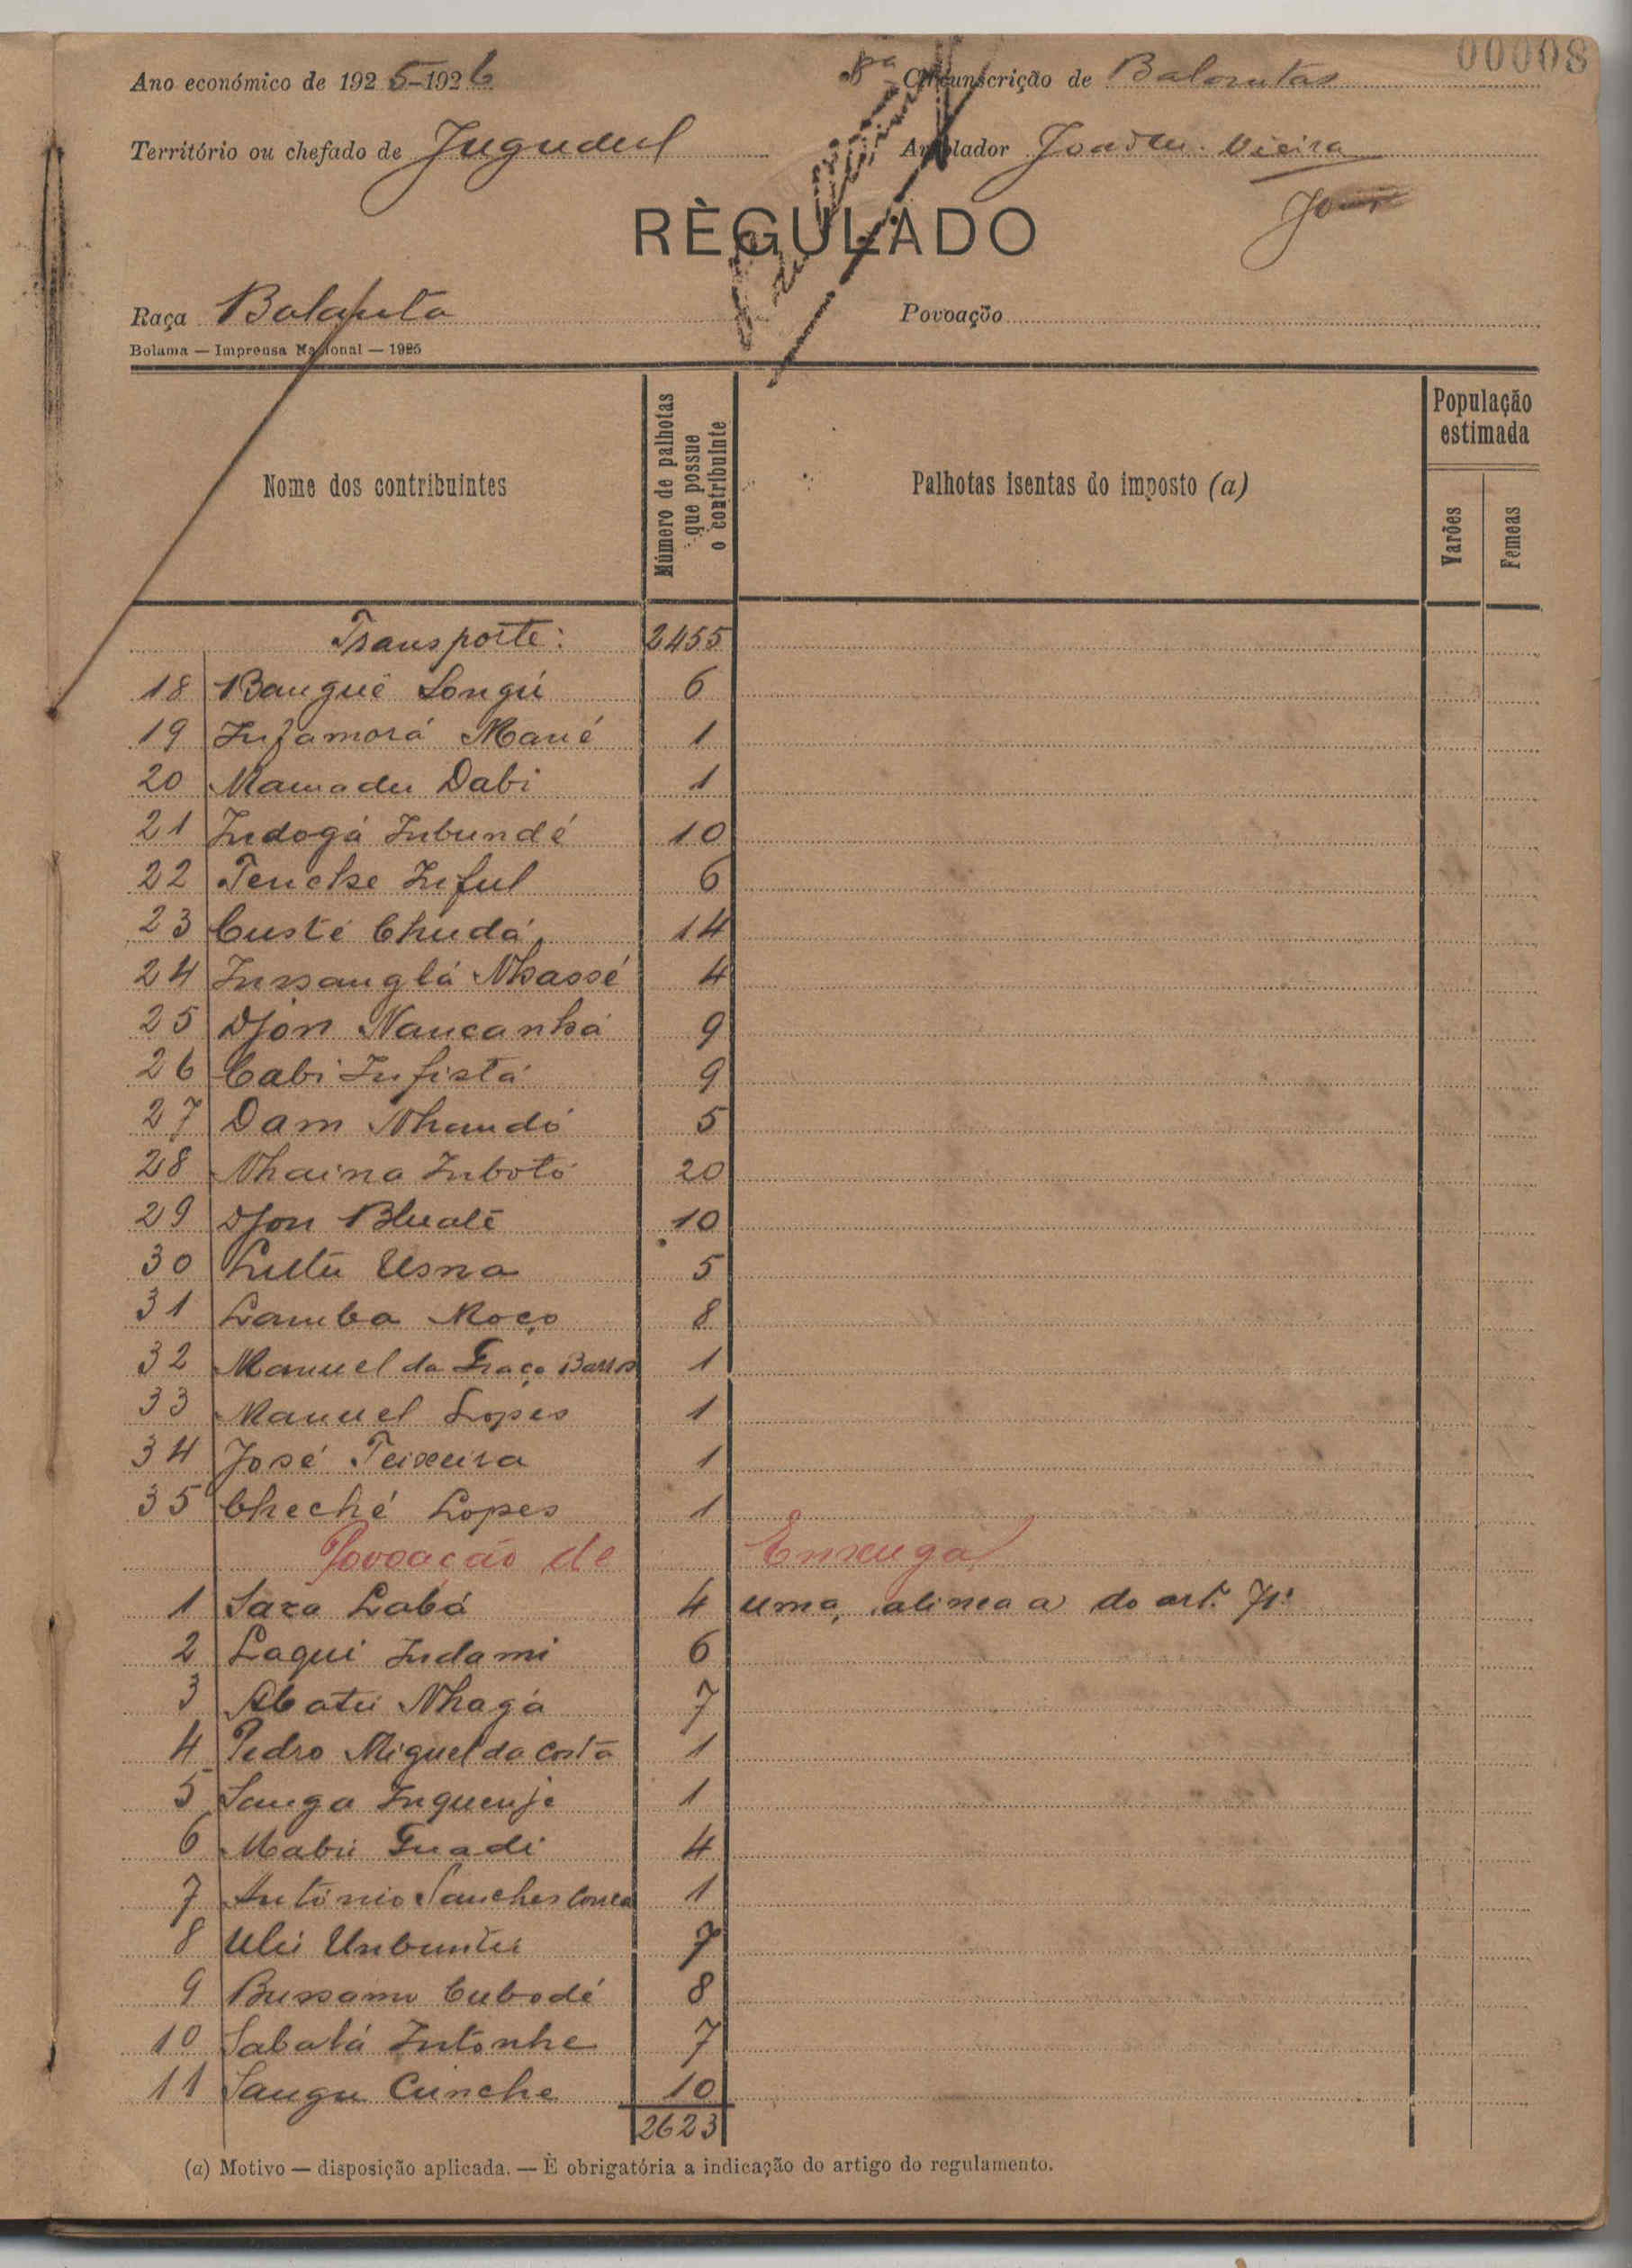 00008
Ano económico de 1925-1926
Circunscrição de Balantas
Território ou chefado de Jugudul
Arrolador Vieira
RÈGULADO
Raça Balanta
Povoação
Bolama — Imprensa Nacional — 1925
Nome dos contribuintes
Número de palhotas que possue o contribuinte
Palhotas isentas do imposto (a)
População estimada
Varões
Femeas
Transporte: 2455
18 Bangué Longú 6
19 Infamorá Mané 1
20 Mamadu Dabi 1
21 Indogá Inbundé 10
22 Tenche Inful 6
23 Custé Chudá 14
24 Inssanglá Nhassé 4
25 Djon Nancanha 9
26 Cabi Infistá 9
27 Dam Nhandó 5
28 Nhaina Inbotó 20
29 Djon Blualé 10
30 Lutu Usna 5
31 Lamba Moço 8
32 Manuel da Graça Barros 1
33 Manuel Lopes 1
34 José Teixeira 1
35 Cheché Lopes 1
Povoação de Enxuga
1 Saza Labá 4 uma, alinea a do art.
2 Laqui Indami 6
3 Abatú Nhagá 7
4 Pedro Miguel da Costa 1
5 Sanga Inquenje 1
6 Mabú Guadi 4
7 António Sanches Correa 1
8 Ulú Unbuntú 7
9 Bussamu Cubodé 8
10 Sabalá Intonhe 7
11 Sangu Cunche 10
2623
(a) Motivo — disposição aplicada. — È obrigatória a indicação do artigo do regulamento.